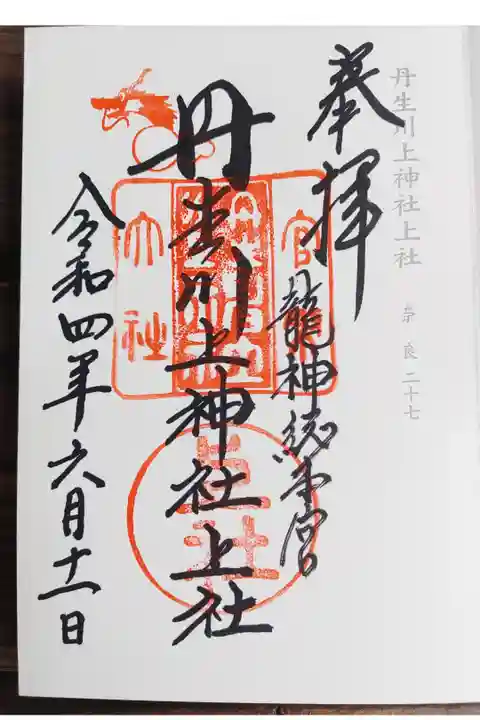 丹生川上神社上社 奈良二十七
奉拝
龍神総本宮
丹生川上神社上社
令和四年六月十一日
官幣
大社
上社